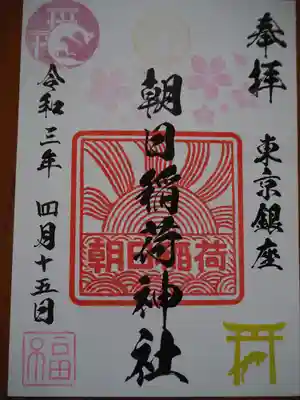 奉拝
東京銀座
朝日稲荷神社
朝日稲荷
令和三年 四月十五日
福